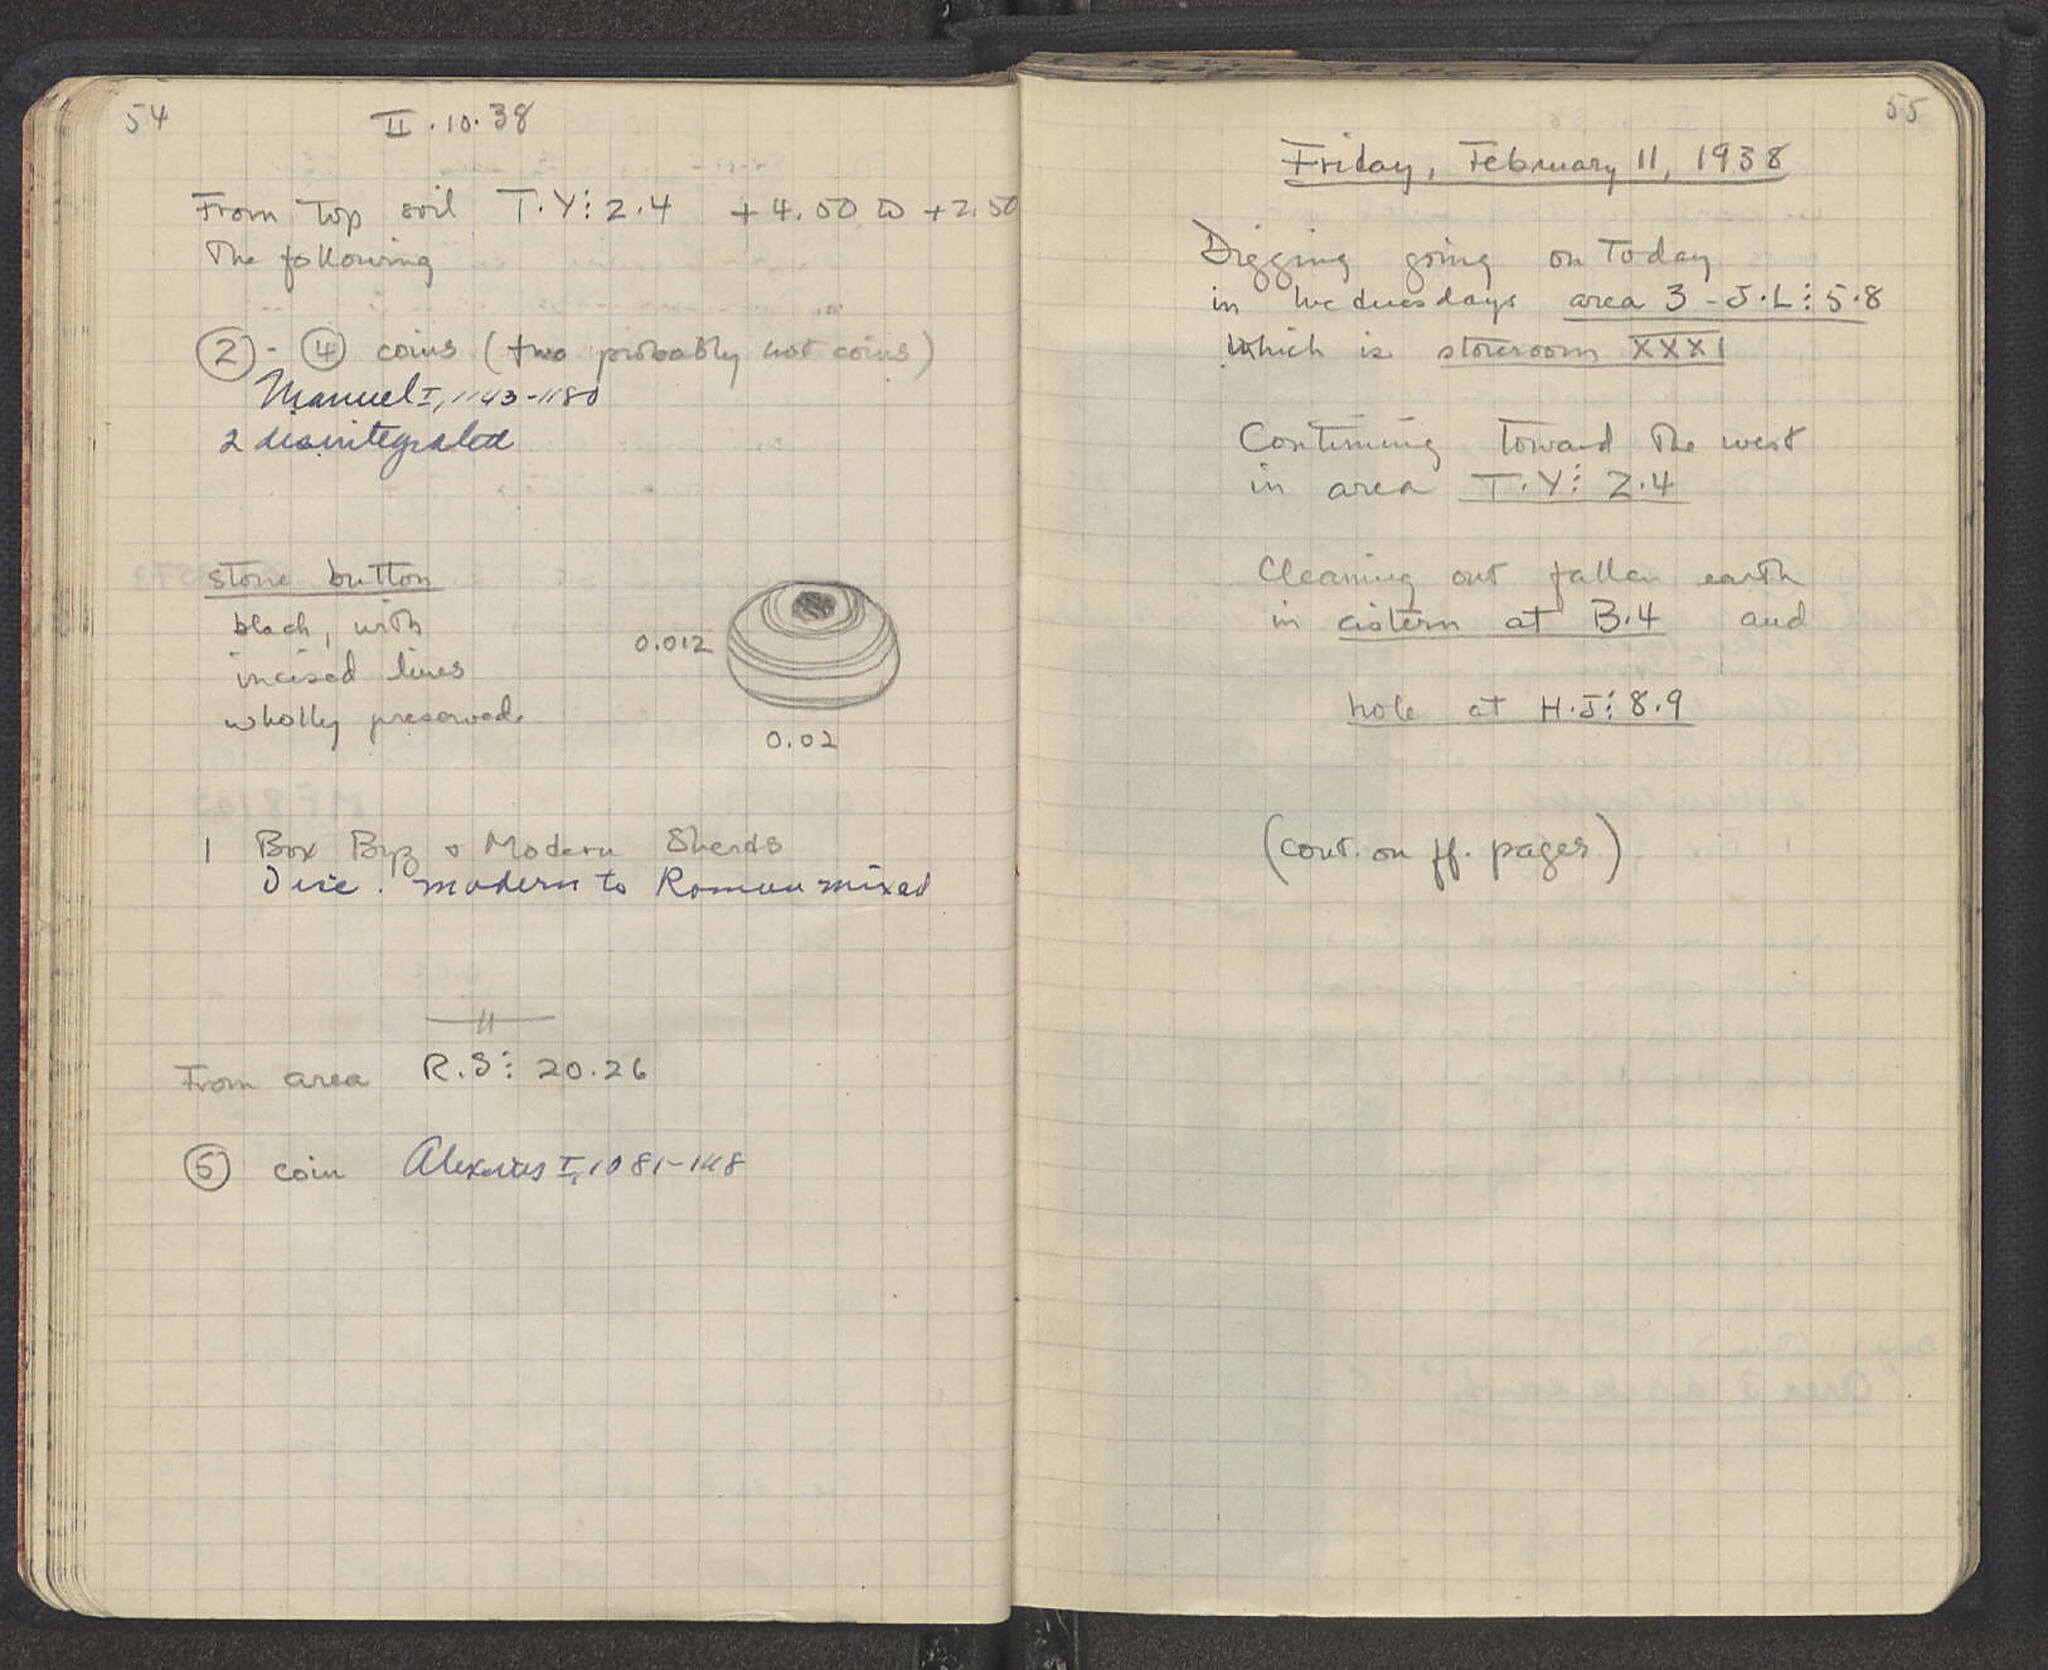 54
II.10.38
From top soil T.Y⋮2.4 +4.50 to +2.50
The following
②-④ coins (two probably not coins)
Manuel I, 1143-1180
2 disintegrated
stone button
black, with
incised lines
wholly preserved.
0.012
0.02
1 Box Byz & Modern Sherds
Disc. modern to Roman mixed
From area R.S⋮20.26
⑤ coin Alexius I, 1081-1118
55
Friday, February 11, 1938
Digging going on Today
in Wednesdays area 3 - J.L⋮5.8
Which is storeroom XXXI
Continuing toward the west
in area T.Y⋮2.4
Cleaning out fallen earth
in cistern at B.4 and
hole at H.J⋮8.9
(cont. on ff. pages)